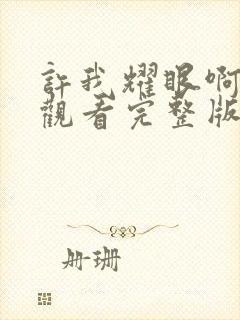 許我耀眼啊
觀看完整版
冊珊